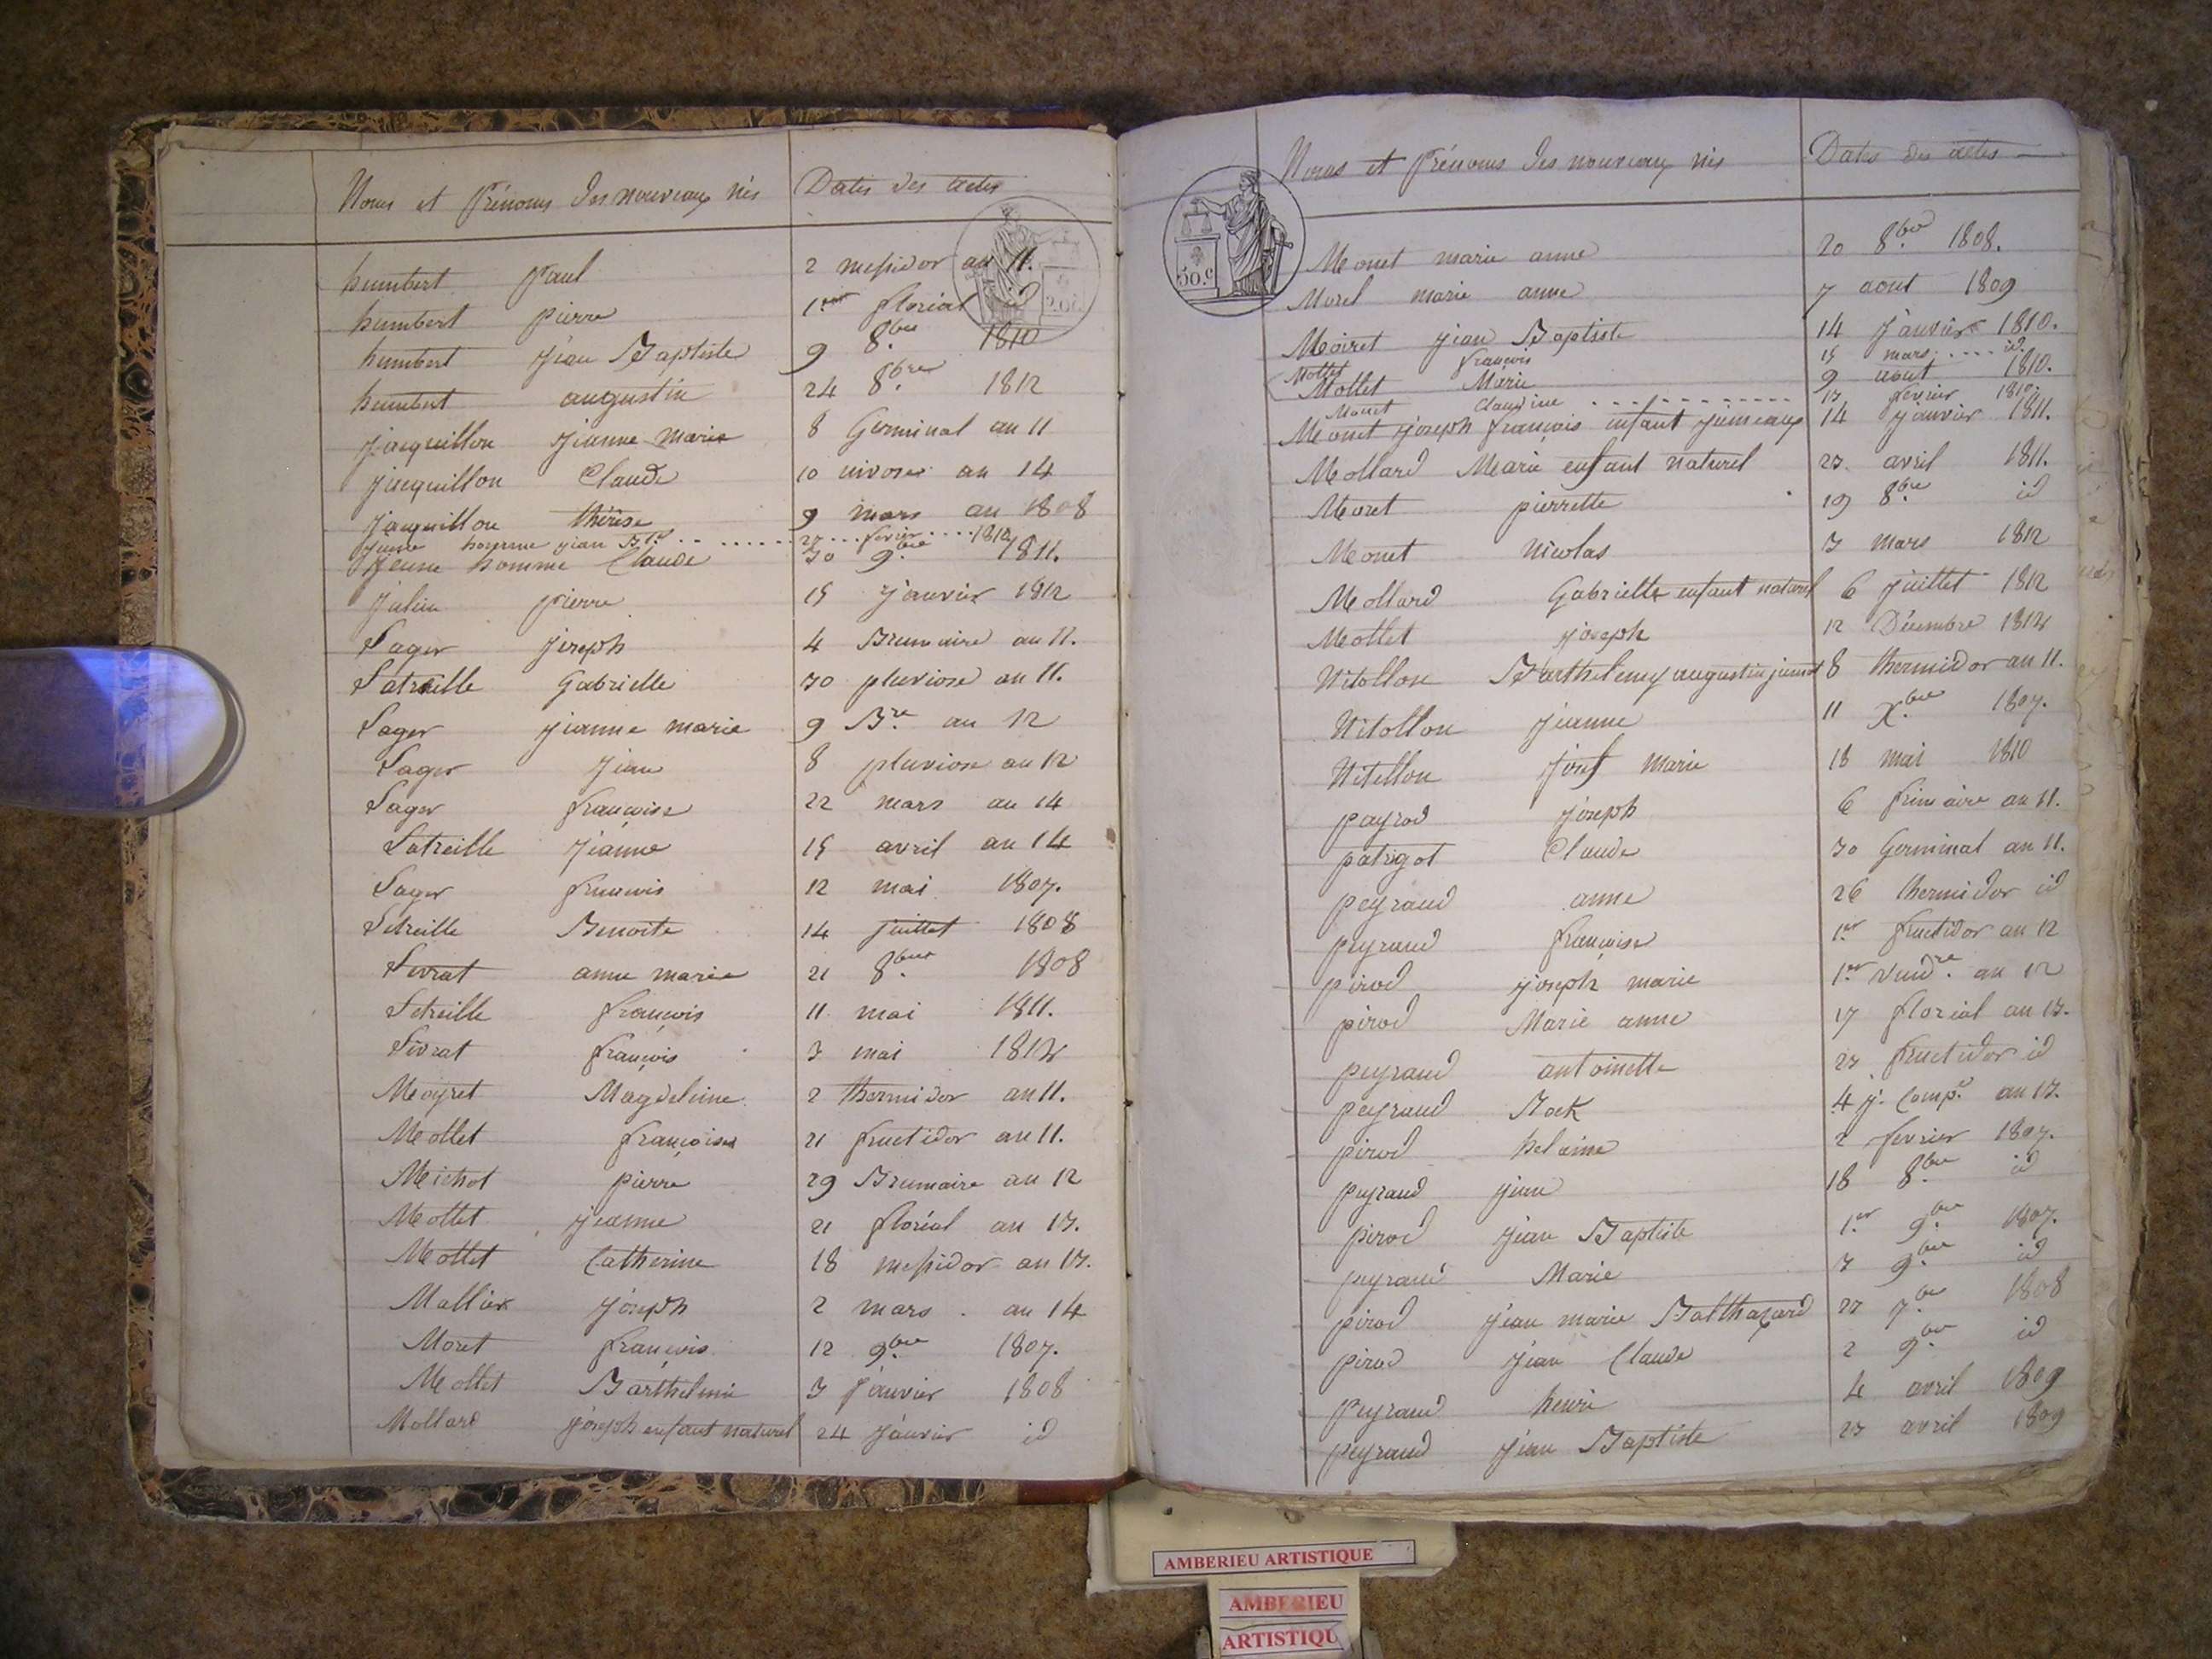 Noms et Prénoms des nouveaux nés Dates des actes
humbert Paul 2 messidor an 11.
humbert pierre 1er floréal id
humbert jean Baptiste 9 8bre 1810
humbert augustin 24 8bre 1812
jacquillon jeanne marie 8 Germinal an 11
jacquillon Claude 10 nivose an 14
jacquillon thérèse 9 mars an 1808
jeune homme jean Bte 27 fevrier 1810
jeune homme Claude 30 9bre 1811.
julien pierre 15 janvier 1812
Lager joseph 4 Brumaire an 11.
Latreille Gabrielle 30 pluviose an 11.
Lager jeanne marie 9 Bre an 12
Lager jean 8 pluviose an 12
Lager francoise 22 mars an 14
Latreille jeanne 15 avril an 14
Lager francois 12 mai 1807.
Letreille Benoite 14 juillet 1808
Livrat anne marie 21 8bre 1808
Letreille françois 11 mai 1811.
Livrat françois 3 mai 1812
Moyret Magdeleine 2 thermidor an 11.
Mollet françoise 21 fructidor an 11.
Michot pierre 29 Brumaire an 12
Mollet jeanne 21 floréal an 13.
Mollet Catherine 18 messidor an 13.
Mallier joseph 2 mars an 14
Moret françois 12 9bre 1807.
Mollet Barthelemi 3 janvier 1808
Mollard joseph enfant naturel 24 janvier id
Noms et Prénoms des nouveaux nés Dates des actes
50.c
Monet marie anne 20 8bre 1808.
Morel marie anne 7 aout 1809
Moiret jean Baptiste 14 janvier 1810.
Mollet françois 15 mars id.
Mollet Marie 9 aout 1810.
Monet Claudine 13 fevrier 1810.
Monet joseph françois enfant jumeaux 14 janvier 1811.
Mollard Marie enfant naturel 23 avril 1811.
Moret pierrette 19 8bre id
Monet Nicolas 3 mars 1812
Mollard Gabrielle enfant naturel 6 juillet 1812
Mollet joseph 12 Décembre 1812
Nitollon Barthelemy augustin 8 thermidor an 11.
Nitollon jeanne 11 Xbre 1807.
Nitellon josef marie 18 mai 1810
payrod joseph 6 frimaire an 11.
patigot Claude 30 Germinal an 11.
peyraud anne 26 thermidor id
peyraud françoise 1er fructidor an 12
pirod joseph marie 1er vendre an 12
pirod Marie anne 17 floréal an 13.
peyraud antoinette 23 fructidor id
peyraud Rock 4 j. Comp. an 13.
pirod helaine 2 fevrier 1807.
peyraud jean 18 8bre id
pirod jean Baptiste 1er 9bre 1807.
peyraud Marie 3 9bre id
pirod jean marie Balthazard 23 7bre 1808
pirod jean Claude 2 9bre id
peyraud henri 4 avril 1809
peyraud jean Baptiste 23 avril 1809
AMBERIEU ARTISTIQUE
AMBERIEU
ARTISTIQU